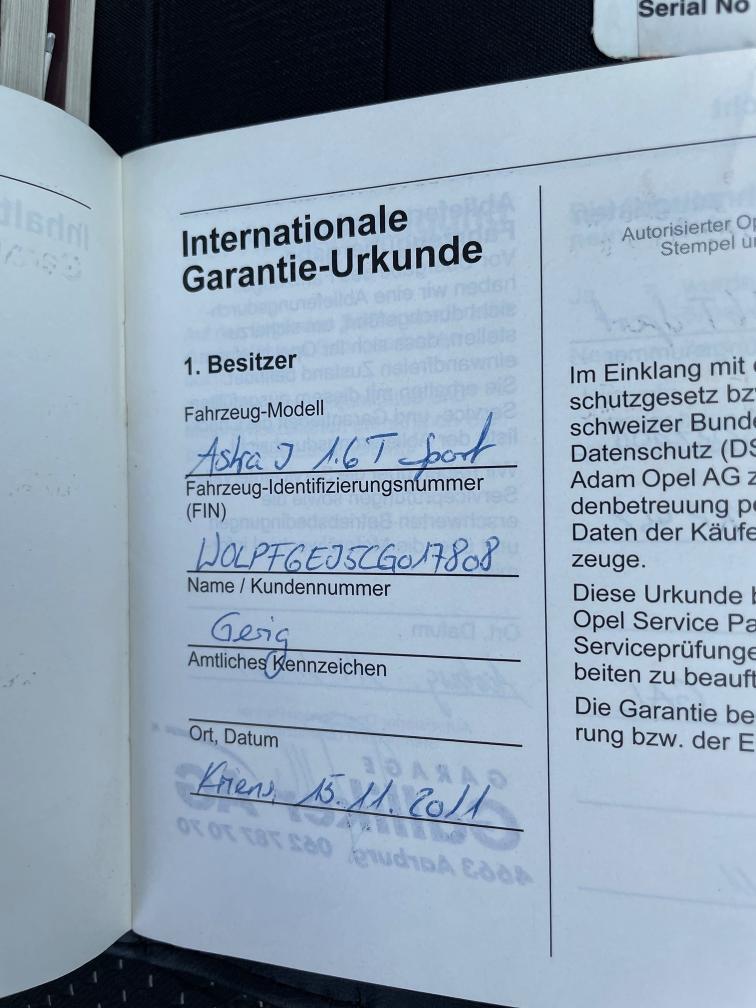 Serial No
Internationale
Garantie-Urkunde
1. Besitzer
Fahrzeug-Modell
Astra J 1.6 T Sport
Fahrzeug-Identifizierungsnummer
(FIN)
WOLPF6EJ5CG017808
Name / Kundennummer
Gesig
Amtliches Kennzeichen
Ort, Datum
Kriens, 15.11.2011
Autorisierter Op
Stempel un
Im Einklang mit
schutzgesetz bzw
schweizer Bunde
Datenschutz (DS
Adam Opel AG z
denbetreuung pe
Daten der Käufe
zeuge.
Diese Urkunde b
Opel Service Pa
Serviceprüfunge
beiten zu beauft
Die Garantie be
rung bzw. der E